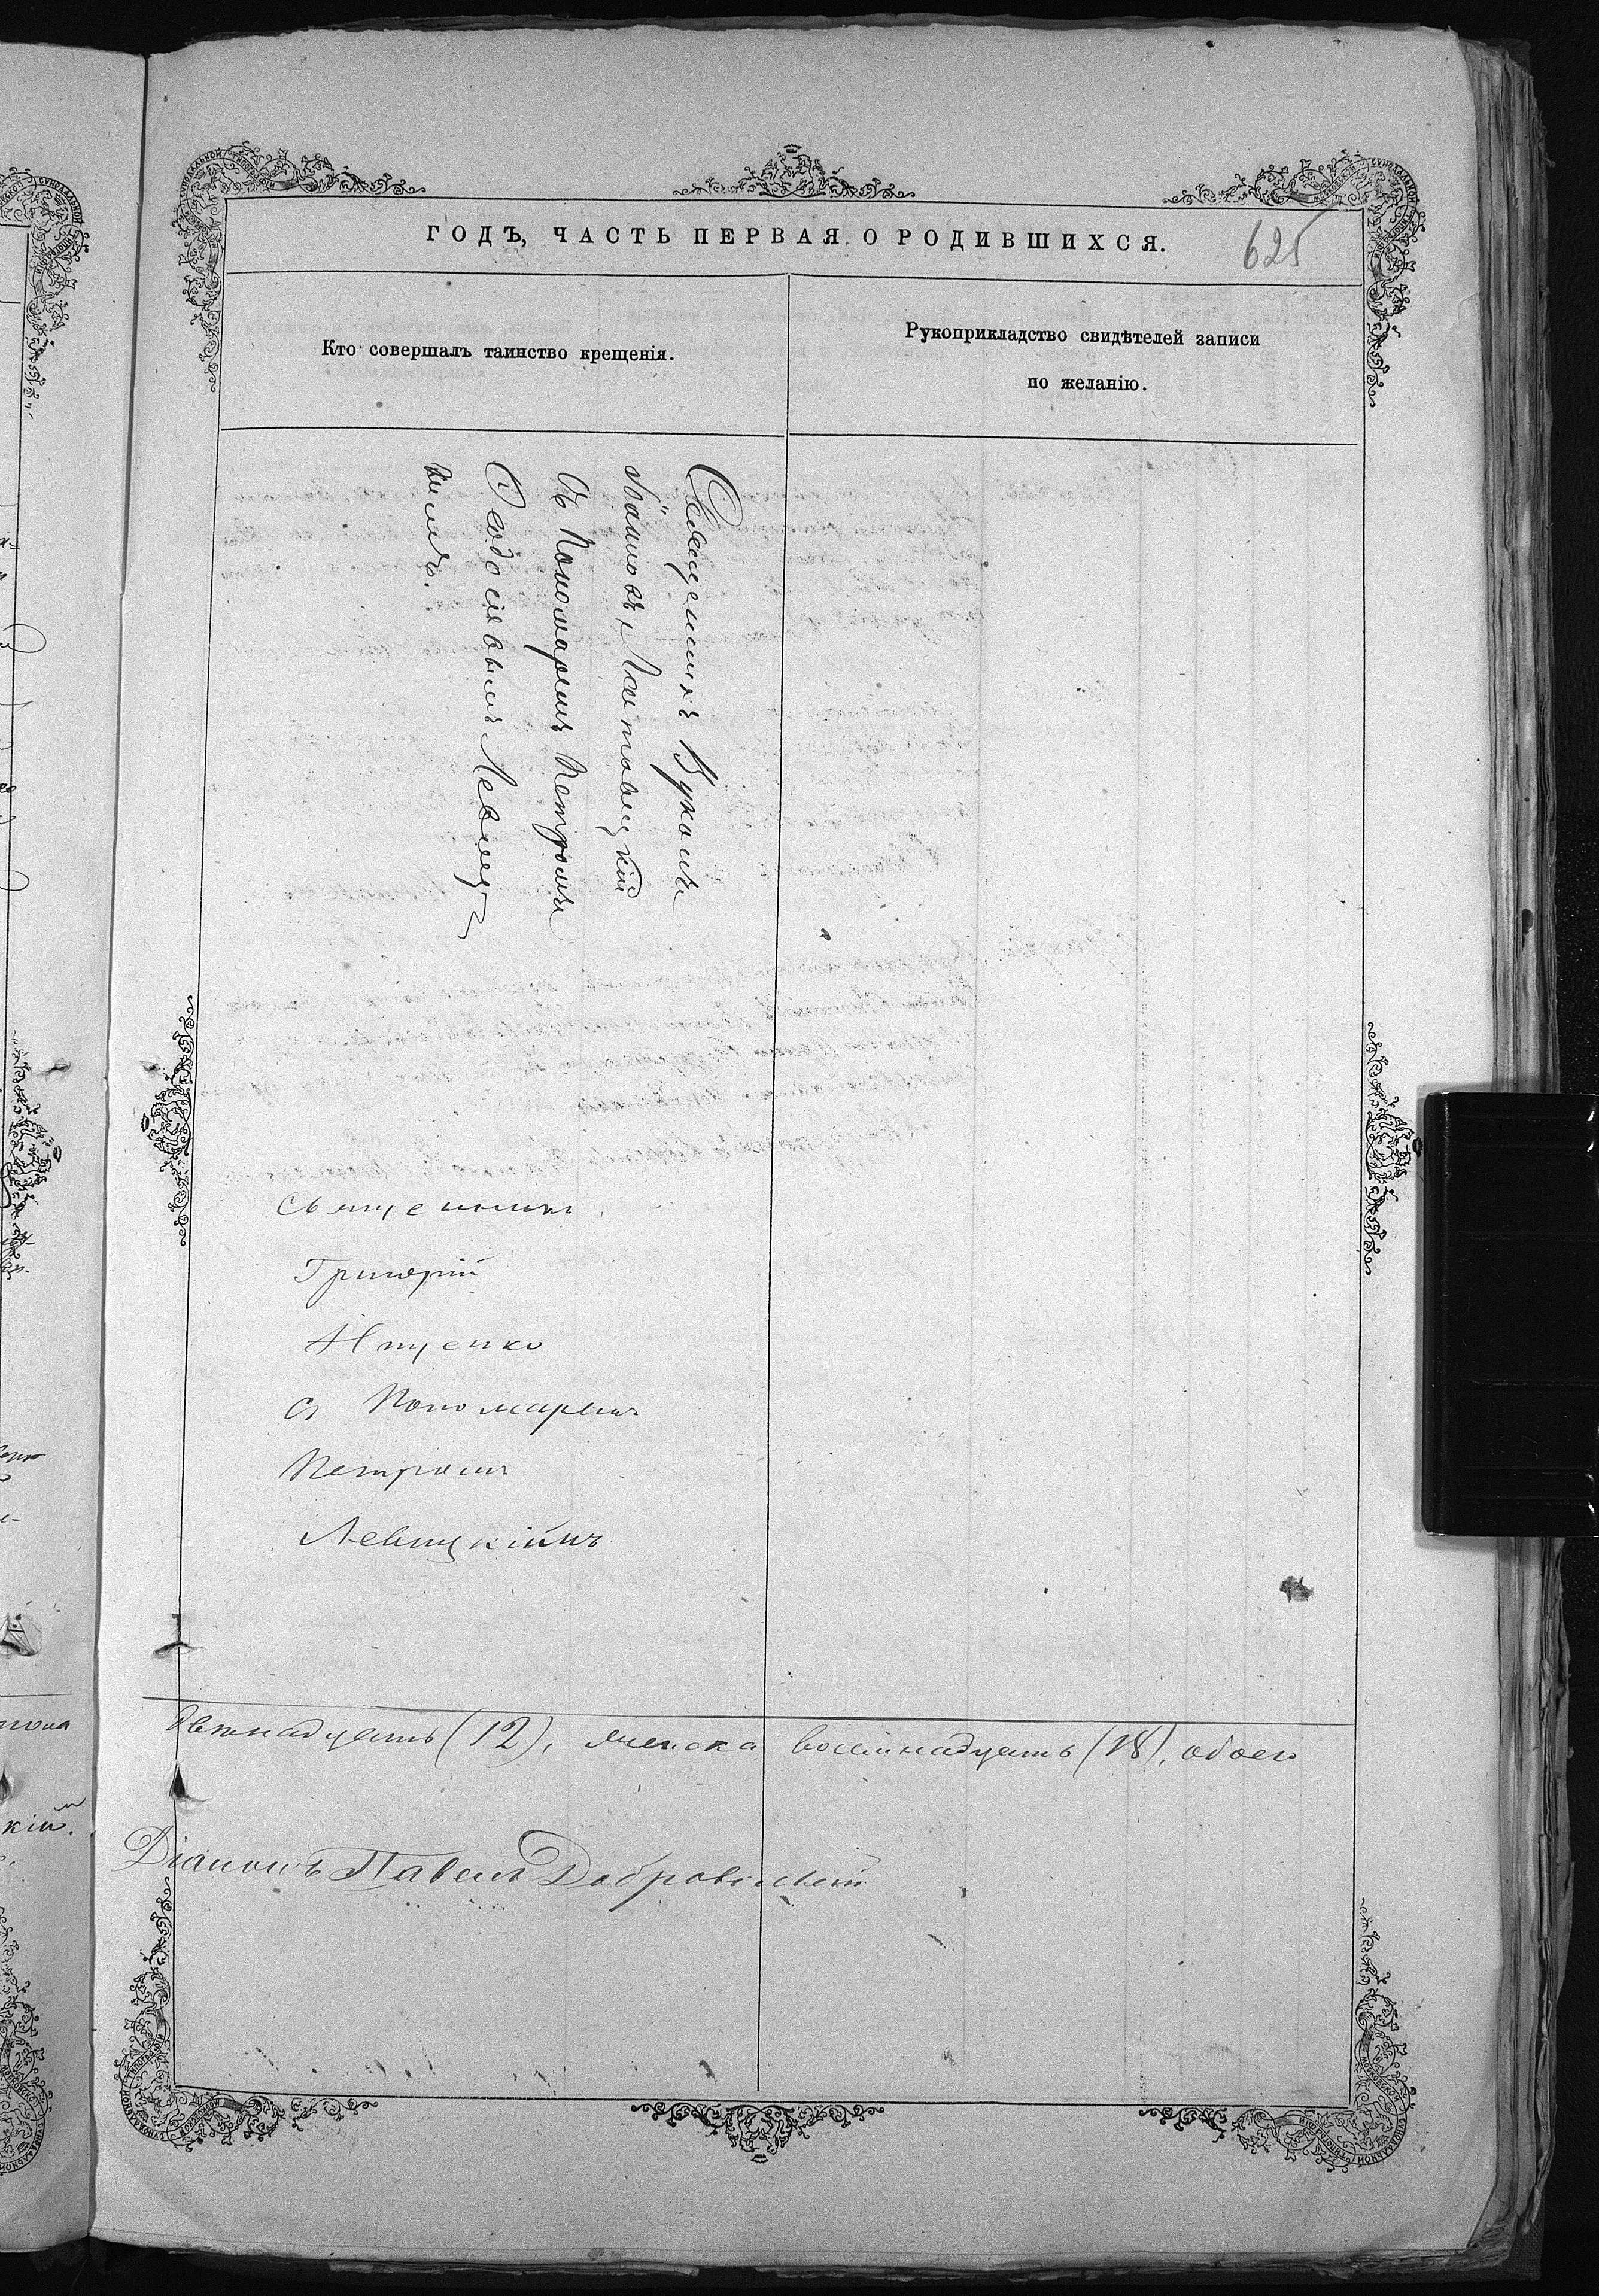 ГОДЪ, ЧАСТЬ ПЕРВАЯ О РОДИВШИХСЯ.
625
Кто совершалъ таинство крещенія.
Рукоприкладство свидѣтелей записи
по желанію.
Священникъ Вуколъ
Съ Пономаремъ Петромъ
Ѳеодосіевымъ Левиц-
кимъ.
Священникъ
Григорій
Яценко
съ Пономаремъ
Петромъ
Левицкіймъ
двѣнадцать (12), женска восемнадцать (18), обоего
Діаконъ Павелъ Добровольскій